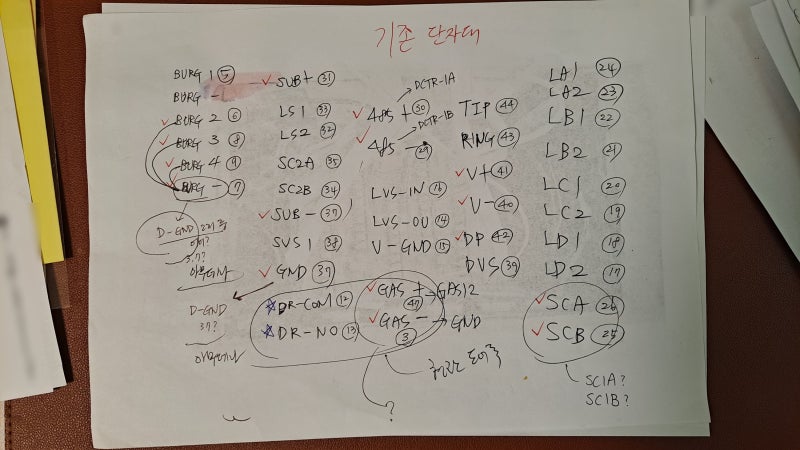 기존 단자대
BURG 1 ⑤
BURG -
BURG 2 ⑥
BURG 3 ⑧
BURG 4 ⑨
BURG - ⑦
D-GND
37?
아무데나
D-GND
37?
아무데나
SUB+ ㉛
LS1 ㉝
LS2 ㉜
SC2A ㉟
SC2B ㉞
SUB- ㊲
SVS1 ㊳
GND ㊲
DR-COM ⑫
DR-NO ⑬
DCTR-1A
485 +
DCTR-1B
485 - ㉙
LVS-IN ⑯
LVS-OU ⑭
V-GND ⑮
GAS + → GAS12
㊼
GAS - → GND
③
?
TIP ㊹
RING ㊸
V+ ㊶
V- ㊵
DP ㊷
DVS ㊴
LA1 ㉔
LA2 ㉓
LB1 ㉒
LB2 ㉑
LC1 ⑳
LC2 ⑲
LD1 ⑱
LD2 ⑰
SCA ㉖
SCB ㉕
SC1A?
SC1B?